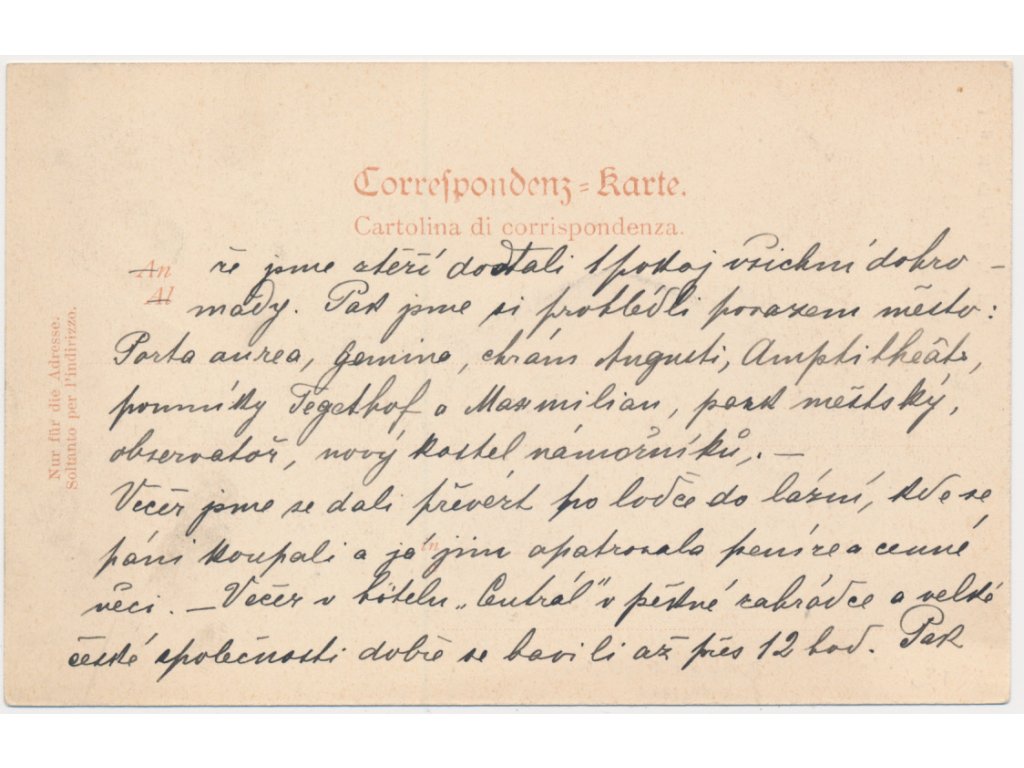 Correspondenz-Karte.
Cartolina di corrispondenza.
An
Al
Nur für die Adresse.
Soltanto per l'indirizzo.
že jme ztěží dostali 1 pokoj všichni dohro-
mady. Pak jsme si prohlédli pořazem město:
Porta aurea, Gemina, chrám Augusti, Amphitheâtr,
pomníky Tegethof a Maxmilian, park městský,
observatoř, nový kostel námořníků,. —
Večer jsme se dali převézt po loďce do lázní, kde se
páni koupali a já jim opatrovala peníze a cenné
věci. — Večer v hôtelu „Centrál" v pěkné zahrádce a velké
české společnosti dobře se bavili až přes 12 hod. Pak